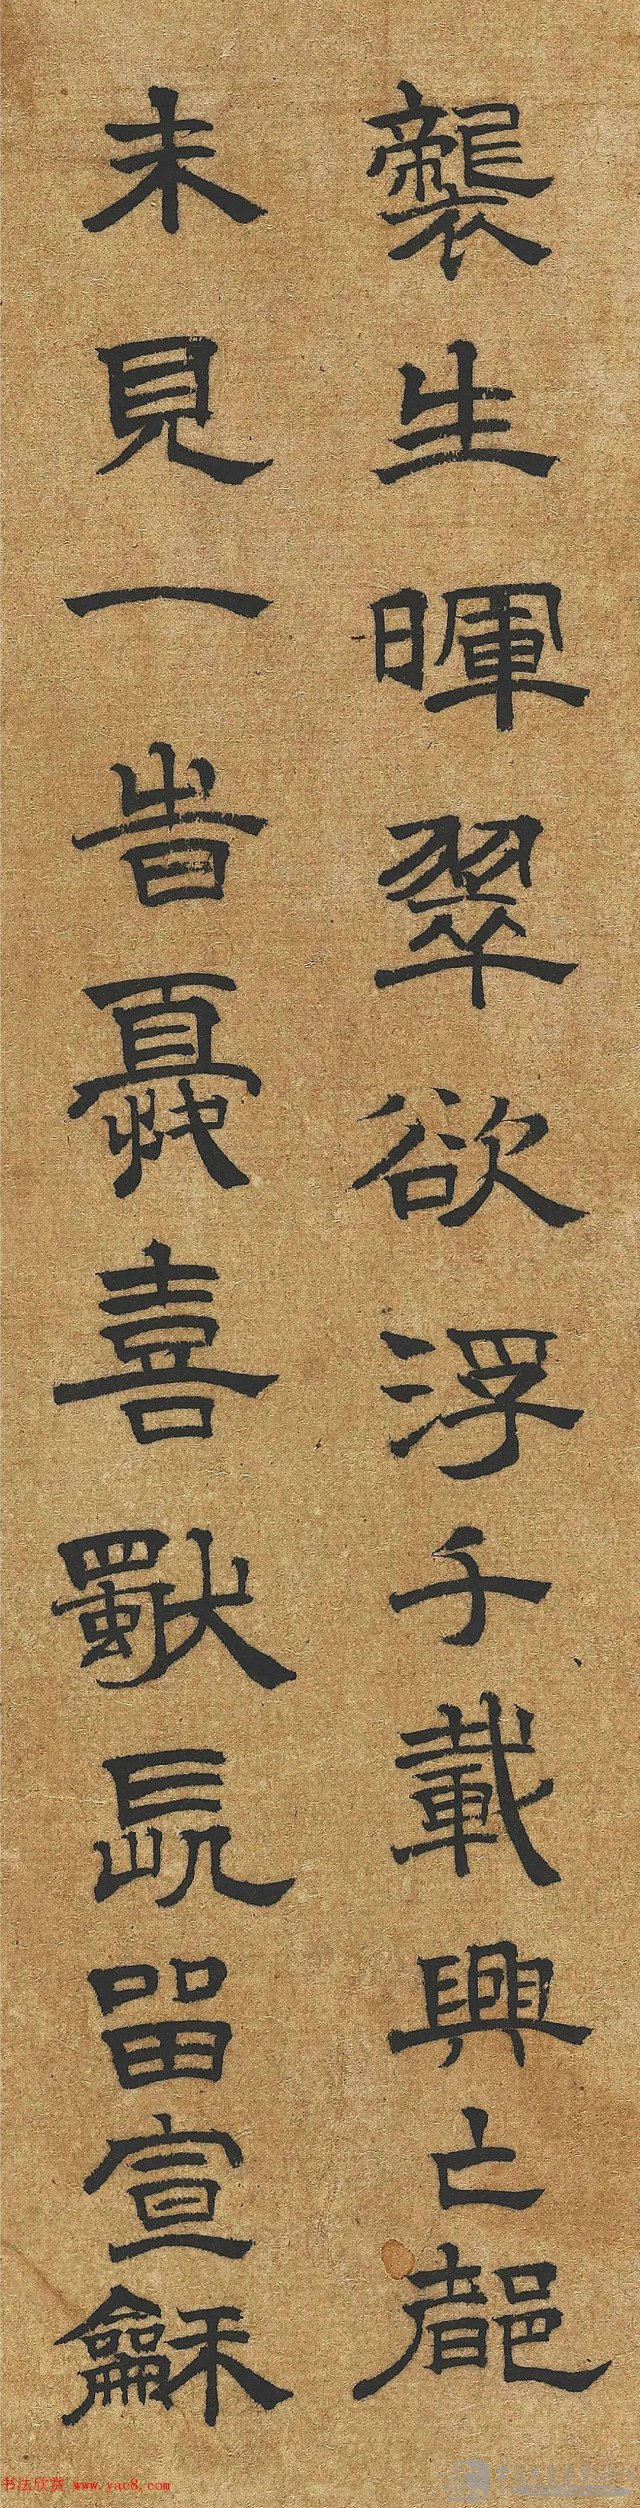 襲生暉翠欲浮千載興亡都
未見一旹憂喜獨長留宣龢
书法欣赏 www.yac8.com